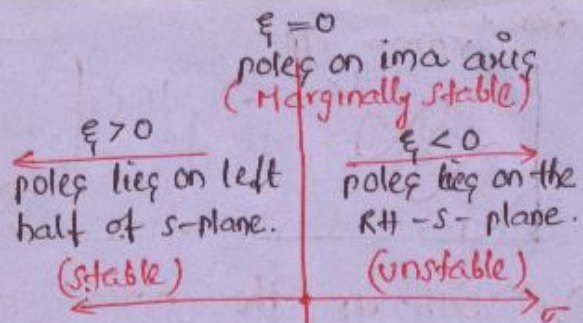 ξ = 0
poles on ima axis
(Marginally stable)
ξ > 0
poles lies on left
half of s-plane.
(stable)
ξ < 0
poles lies on the
RH-s-plane.
(unstable)
σ